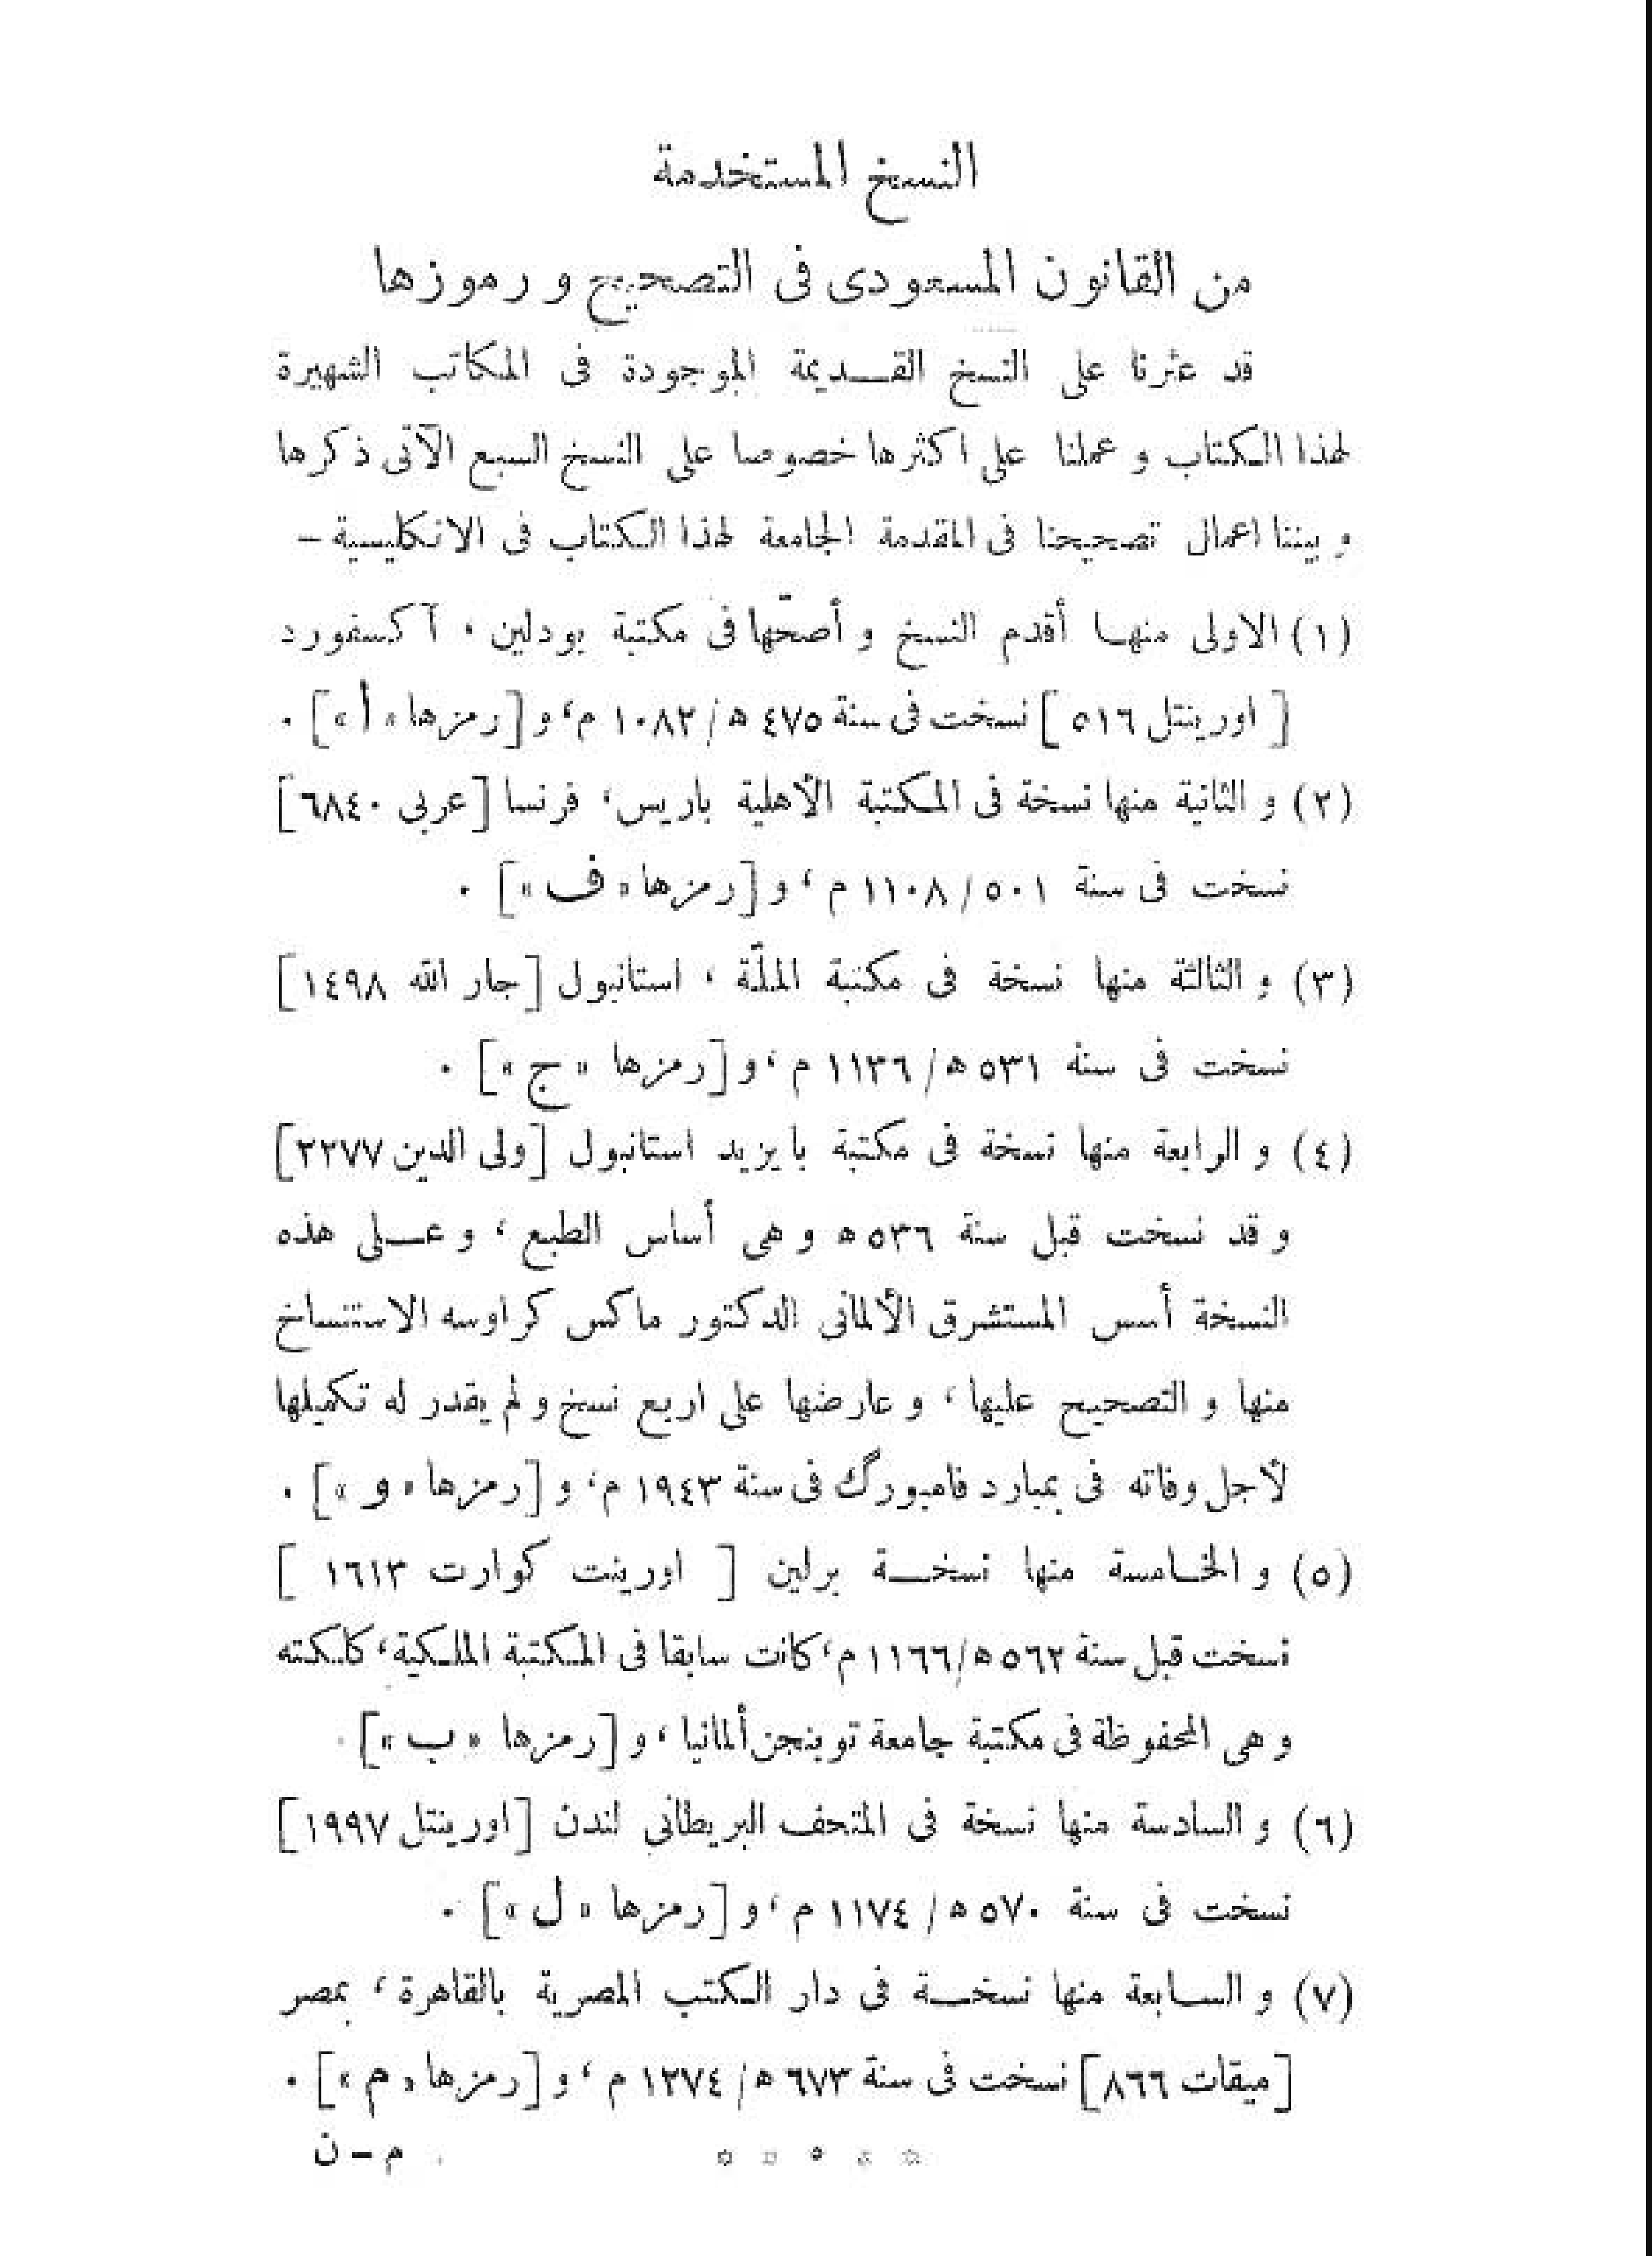 النسخ المستخدمة
من القانون المسعودى فى التصحيح و رموزها
قد عثرنا على النسخ القـــديمة الموجودة فى المكاتب الشهيرة
لهذا الكتاب و عملنا على اكثرها خصوصا على النسخ السبع الآتى ذكرها
و بيننا اعمال تصحيحنا فى المقدمة الجامعة لهذا الكتاب فى الانكليسية –
(١) الاولى منهـا أقدم النسخ و أصحّها فى مكتبة بودلين ، آكسفورد
[ اورينتل ٥١٦ ] نسخت فى سنة ٤٧٥ ھ/ ١٠٨٢ م، و [رمزها « أ »] .
(٢) و الثانية منها نسخة فى المكتبة الأهلية باريس، فرنسا [عربى ٦٨٤٠]
نسخت فى سنة ٥٠١ / ١١٠٨ م ، و [رمزها « ف »] .
(٣) و الثالثة منها نسخة فى مكتبة الملّة ، استانبول [جار الله ١٤٩٨]
نسخت فى سنة ٥٣١ ھ/ ١١٣٦ م ، و [رمزها « ج »] .
(٤) و الرابعة منها نسخة فى مكتبة بايزيد استانبول [ولى الدين ٢٢٧٧]
و قد نسخت قبل سنة ٥٣٦ ھ و هى أساس الطبع ، و عــلى هذه
النسخة أسس المستشرق الألمانى الدكتور ماكس كراوسه الاستنساخ
منها و التصحيح عليها ، و عارضها على اربع نسخ و لم يقدر له تكميلها
لأجل وفاته فى بمبارد فامبورگ فى سنة ١٩٤٣ م، و [رمزها « و »] .
(٥) و الخـامسة منها نسخــة برلين [ اورينت كوارت ١٦١٣ ]
نسخت قبل سنة ٥٦٢ ھ/١١٦٦ م، كانت سابقا فى المكتبة الملكية، كلكته
و هى المحفوظة فى مكتبة جامعة توبنجن ألمانيا ، و [رمزها « ب »] .
(٦) و السادسة منها نسخة فى المتحف البريطانى لندن [اورينتل ١٩٩٧]
نسخت فى سنة ٥٧٠ ھ / ١١٧٤ م ، و [رمزها « ل »] .
(٧) و الســابعة منها نسخــة فى دار الكتب المصرية بالقاهرة ، بمصر
[ميقات ٨٦٦] نسخت فى سنة ٦٧٣ ھ/ ١٢٧٤ م ، و [رمزها « م »] .
م – ن